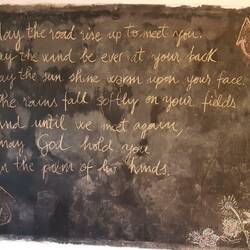 May the road rise up to meet you.
May the wind be ever at your back
May the sun shine warm upon your face.
The rains fall softly on your fields
And until we meet again,
may God hold you
in the palm of his hands.